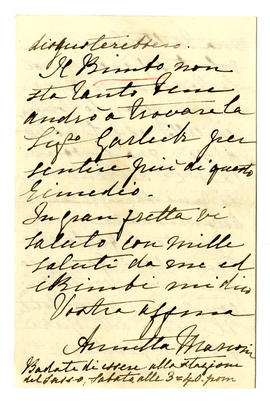 disgusterebbero.
Il Bimbo non
sta tanto bene
andrò a trovare la
Sig.ª Garlick per
sentire più di questo
rimedio.
In gran fretta vi
saluto con mille
saluti da me ed
i Bimbi mi dico
Vostra affma
Annetta Marconi
Badate di essere alla stazione
del Sasso, sabato alle 3=40. pom